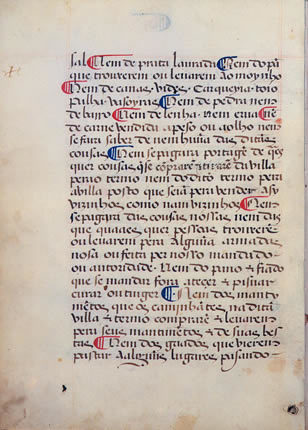 sal ¶ Nem de prata laurada ¶ Nem do pã
que trouxerem ou leuarem ao moynho
¶ Nem de canas vides Carqueyia toio
palha vasoyras ¶ Nem de pedra nem
de barro ¶ Nem de lenha nem erua ¶ nē
de carne vendida a peso ou a olho nem
se fara saber de nenhũa das ditas
cousas ¶ Nem se pagara portagē de q̃es
quer cousas q̃ se cõprarē e tirarē da villa
pera o termo nem do dito termo pera
a villa posto que seia pera vender asy
vizinhos como nam vizinhos ¶ Nem
se pagara das cousas nossas nem das
que quaaes quer pessoas trouxerē
ou leuarem pera Algũua armada
nosa ou feita per nosso mandado
ou autoridade Nem do pano & fiado
que se mandar fora a teçer & pisoar
curar ou tinger ¶ Nem dos manty
mētos que os caminhãtes na dita
villa & termo comprarē & leuarem
pera seus mantimētos & de suas bes
tas ¶ Nem dos guados que vierem
pastar a alguũs lugares pasando